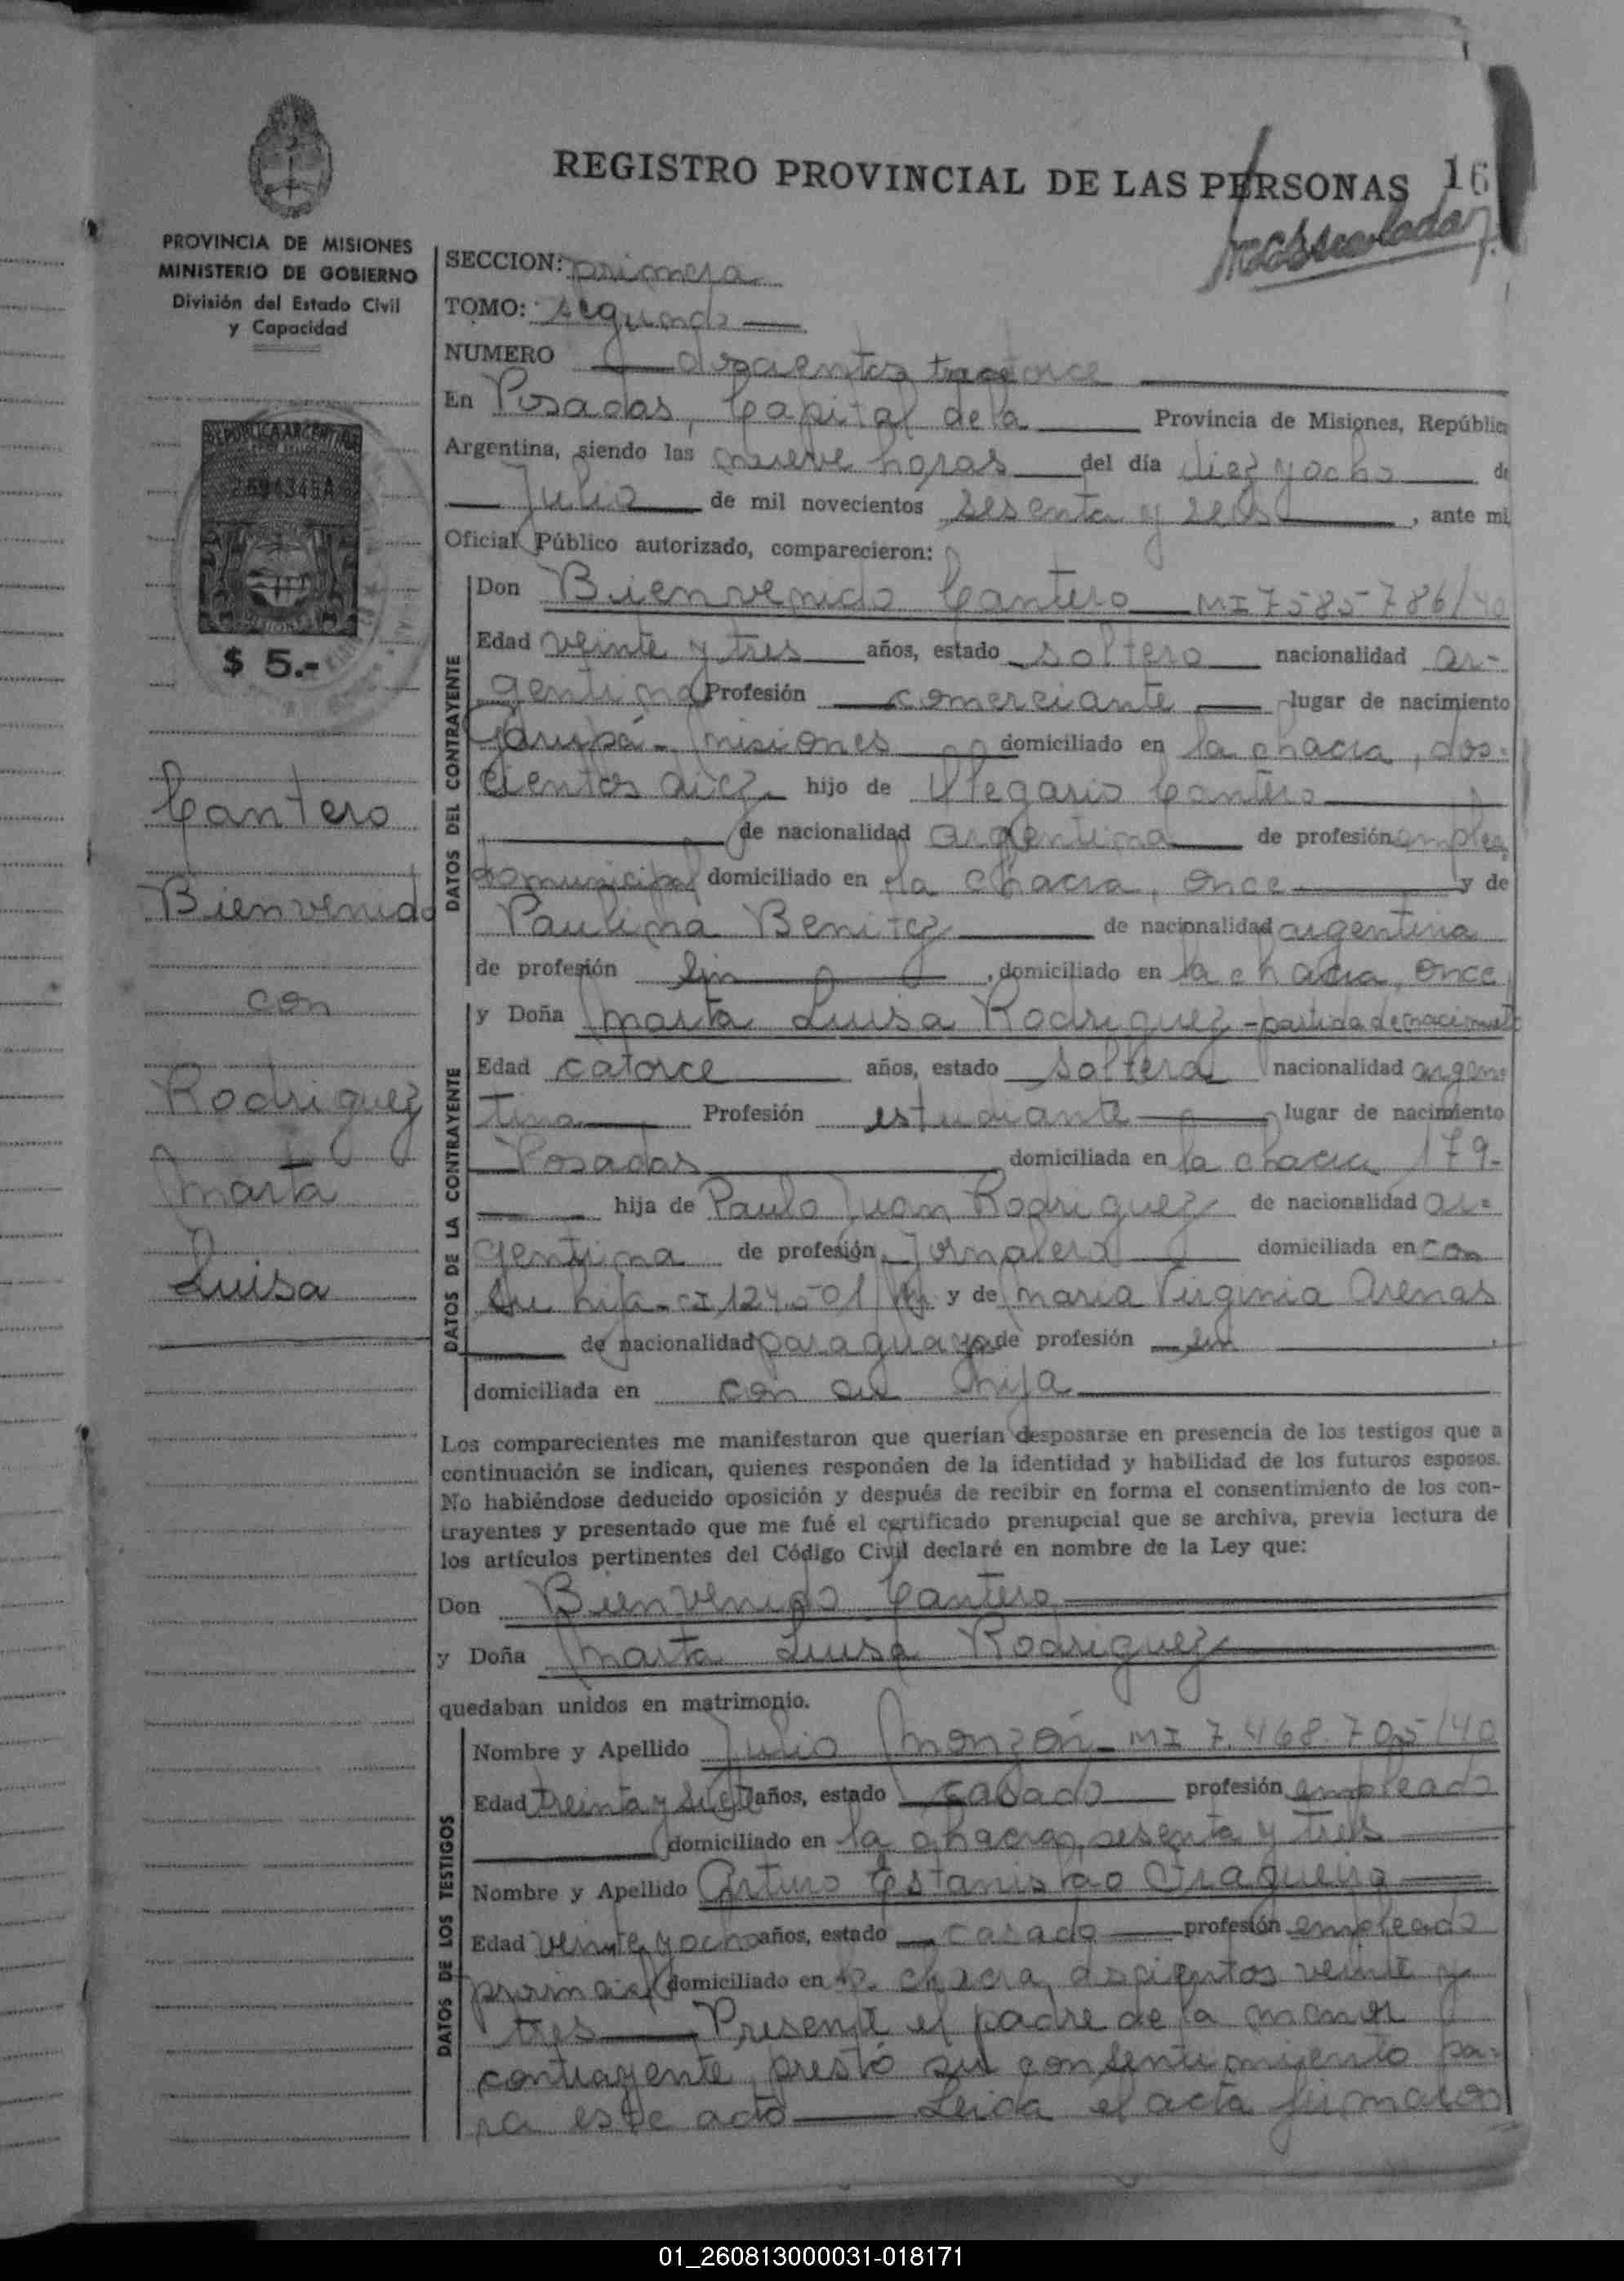 REGISTRO PROVINCIAL DE LAS PERSONAS 16
PROVINCIA DE MISIONES
MINISTERIO DE GOBIERNO
División del Estado Civil
y Capacidad
REPUBLICA ARGENTINA
$ 5.-
Cantero
Bienvenido
con
Rodriguez
Marta
Luisa
SECCION: primera
TOMO: segundo
NUMERO doscientos catorce
En Posadas, Capital de la Provincia de Misiones, República
Argentina, siendo las nueve horas del día diez y ocho de
Julio de mil novecientos sesenta y seis, ante mi
Oficial Público autorizado, comparecieron:
DATOS DEL CONTRAYENTE
Don Bienvenido Cantero MI 7585786/40
Edad veinte y tres años, estado soltero nacionalidad ar-
gentina Profesión comerciante lugar de nacimiento
Garupá - Misiones domiciliado en la chacra, dos-
cientos diez hijo de Ulegario Cantero
de nacionalidad argentina de profesión emplea
do municipal domiciliado en la chacra, once y de
Paulina Benitez de nacionalidad argentina
de profesión sin, domiciliado en la chacra, once
DATOS DE LA CONTRAYENTE
y Doña Marta Luisa Rodriguez - partida de nacimiento
Edad catorce años, estado soltera nacionalidad argen-
tina Profesión estudiante lugar de nacimiento
Posadas domiciliada en la chacra 179-
hija de Paulo Juan Rodriguez de nacionalidad ar-
gentina de profesión Jornalero domiciliada en con
su hija - CI 124.501 y de Maria Virginia Arenas
de nacionalidad paraguaya de profesión sin
domiciliada en con su hija
Los comparecientes me manifestaron que querían desposarse en presencia de los testigos que a
continuación se indican, quienes responden de la identidad y habilidad de los futuros esposos.
No habiéndose deducido oposición y después de recibir en forma el consentimiento de los con-
trayentes y presentado que me fué el certificado prenupcial que se archiva, previa lectura de
los artículos pertinentes del Código Civil declaré en nombre de la Ley que:
Don Bienvenido Cantero
y Doña Marta Luisa Rodriguez
quedaban unidos en matrimonio.
DATOS DE LOS TESTIGOS
Nombre y Apellido Julio Monzón - MI 7.468.705/40
Edad treinta y siete años, estado casado profesión empleado
domiciliado en la chacra, sesenta y tres
Nombre y Apellido Arturo Estanislao
Edad veinte y ocho años, estado casado profesión empleado
provincial domiciliado en la chacra, doscientos veinte y
tres Presente el padre de la menor
contrayente, prestó su consentimiento pa-
ra este acto Leida el acta firmaron
01_260813000031-018171